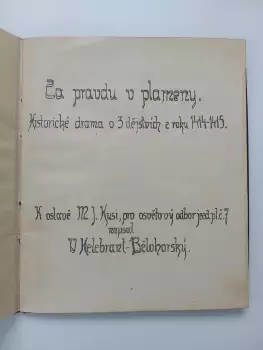 Za pravdu v plameny.
Historické drama o 3 dějstvích z roku 1414-1415.
K oslavě M. J. Husi, pro osvětový odbor jed. pl. č. 7
napsal
V Kelebrant-Bělohorský.